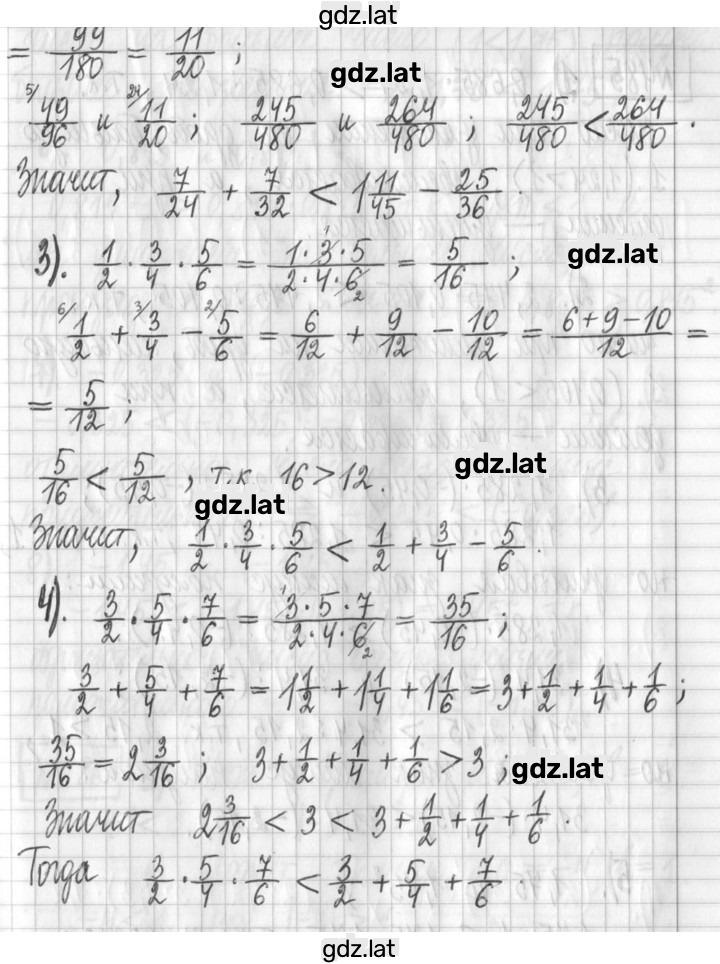 gdz.lat
= 99/180 = 11/20 ;
gdz.lat
5/ 49/96 и 24/ 11/20 ; 245/480 и 264/480 ; 245/480 < 264/480 .
Значит, 7/24 + 7/32 < 1 11/45 − 25/36 .
3). 1/2 · 3/4 · 5/6 = 1·3·5/2·4·6 = 5/16 ;
gdz.lat
6/ 1/2 + 3/ 3/4 − 2/ 5/6 = 6/12 + 9/12 − 10/12 = 6+9−10/12 =
= 5/12 ;
5/16 < 5/12 , т.к. 16 > 12 .
gdz.lat
gdz.lat
Значит, 1/2 · 3/4 · 5/6 < 1/2 + 3/4 − 5/6 .
4). 3/2 · 5/4 · 7/6 = 3·5·7/2·4·6 = 35/16 ;
3/2 + 5/4 + 7/6 = 1 1/2 + 1 1/4 + 1 1/6 = 3 + 1/2 + 1/4 + 1/6 ;
35/16 = 2 3/16 ; 3 + 1/2 + 1/4 + 1/6 > 3 ;
gdz.lat
Значит 2 3/16 < 3 < 3 + 1/2 + 1/4 + 1/6 .
Тогда 3/2 · 5/4 · 7/6 < 3/2 + 5/4 + 7/6 .
gdz.lat